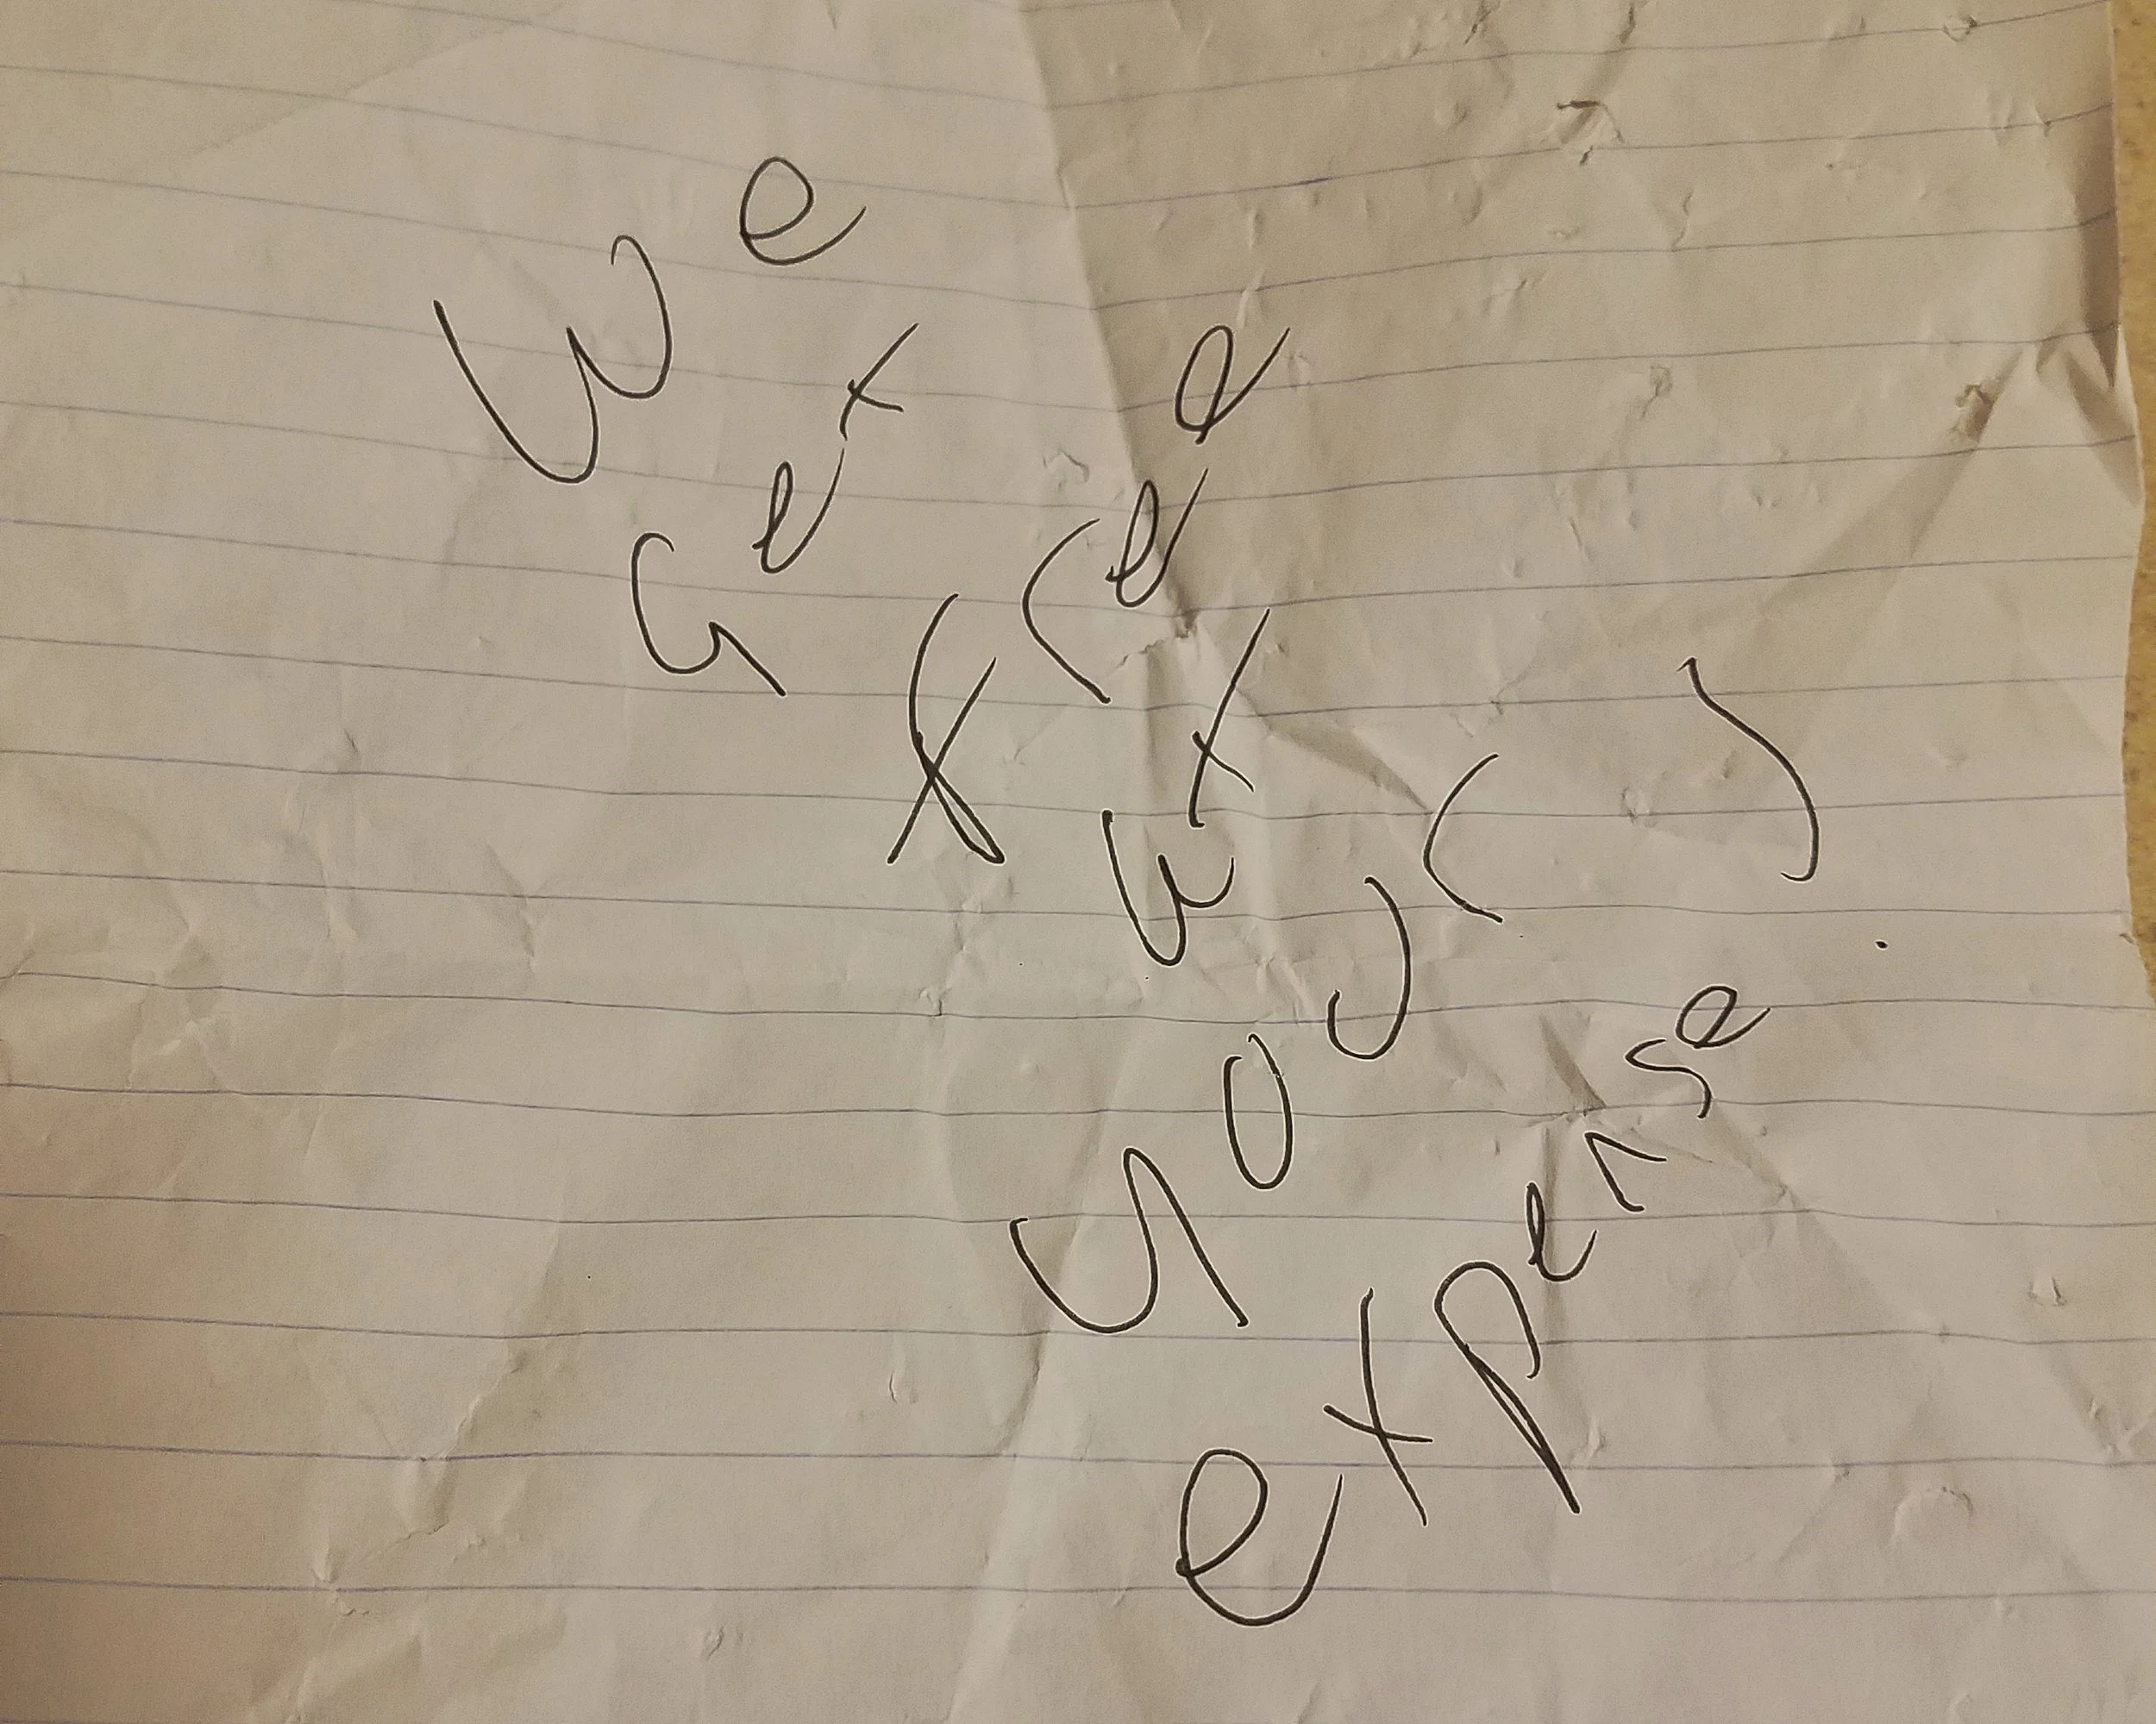 We
Get
free
at
your
expense